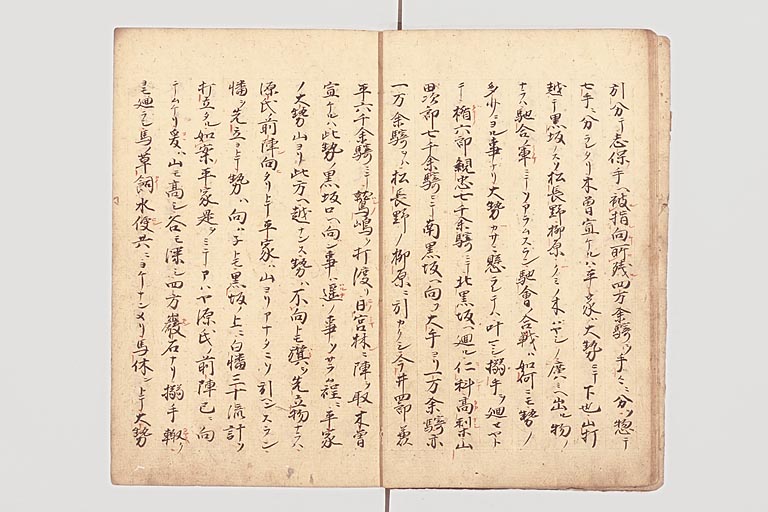 引分テ志保手ヘ被指向所残四万余騎ヲ手々ニ分ツ惣テ
七手ニ分ラレタリ木曽宣ケルハ平家ハ大勢ニテ下也山打
越テ黒坂ノスソ松長野柳原ノ
馳合ノ軍ニテソアラムスラン馳會合戦ハ如何ニモ勢ノ
多少ニヨル事ナリ大勢カサニ懸ラレテハ叶マシ搦手ヲ廻セヤト
テ楯六郎親忠七千余騎ニテ北黒坂ヘ廻ル仁科高梨山
田次郎七千余騎ニテ南黒坂ヘ向フ大手ヨリ一万余騎
一万余騎ヲハ松長野ノ柳原ニ引カクシ今井四郎兼
平六千余騎ニテ鷲嶋ヲ打渡リ日宮林ニ陣ヲ取木曽
宣ケルハ此勢ノ黒坂口ヘ向ン事ハ遥ノ事ソサラン程ニ平家
ノ大勢山ヨリ此方ヘ越ナンス勢ハ不向トモ旗ヲ先立物ナラハ
源氏ノ前陣向タリトテ平家ハ山ヨリアナタニソ引ンスラン
幡ヲ先立ヨトテ勢ハ向ハネトモ黒坂ノ上ニ白幡三十流計ヲ
打立タル如案平家是ヲミテアハヤ源氏ノ前陣已ニ向
テムケリ爰ハ山モ高シ谷モ深シ四方巌石ナリ搦手輙ク
ヨモ廻ラシ馬ノ草飼水便共ニヨケナンメリ馬休ントテ大勢